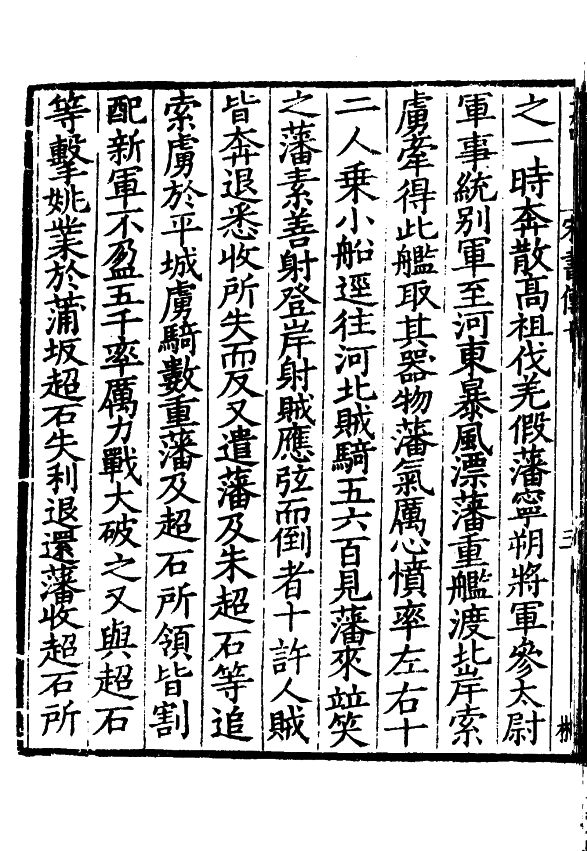 之一時奔散髙祖伐羌假藩寧朔將軍叅太尉
軍事統別軍至河東暴風漂藩重艦渡北岸索
虜牽得此艦取其器物藩氣厲心憤率左右十
二人乗小船逕往河北賊騎五六百見藩來竝笑
之藩素善射登岸射賊應弦而倒者十許人賊
皆奔退悉收所失而反又遣藩及朱超石等追
索虜於平城虜騎數重藩及超石所領皆割
配新軍不盈五千率厲力戰大破之又與超石
等擊姚業於蒲坂超石失利退還藩收超石所